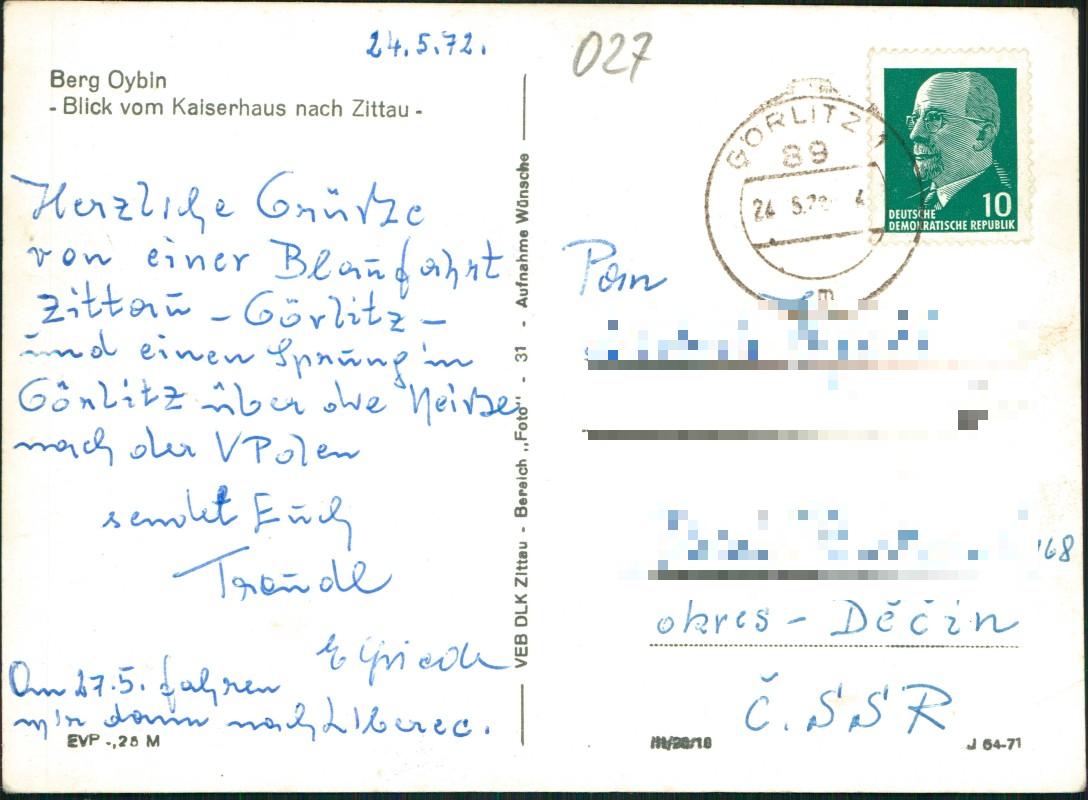 24.5.72.
027
Berg Oybin
- Blick vom Kaiserhaus nach Zittau -
Herzliche Grüße
von einer Blaufahrt
Zittau - Görlitz -
und einen Sprung in
Görlitz über die Neiße
nach der VPolen
sendet Euch
Traudl
Elfriede
Am 27.5. fahren
wir dann nach Liberec.
EVP -,25 M
VEB DLK Zittau - Bereich „Foto" - 31 - Aufnahme Wünsche
GÖRLITZ 1
89
24. 5.72 - 4
m
DEUTSCHE
DEMOKRATISCHE REPUBLIK
10
Pan
168
okres - Děčín
Č.S.S.R
III/28/18
J 64-71